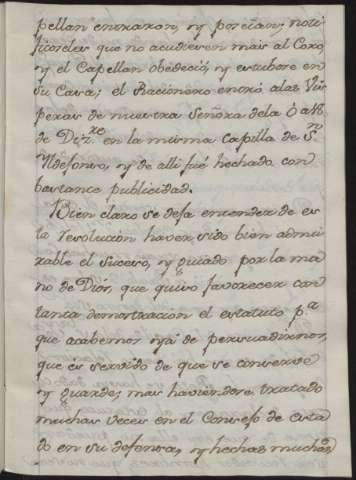 pellan entraron, y por eſtan, noti
ficoseles que no acudiesen mas al Coro,
y el Capellan obedeció, y estubose en
su Casa; el Racionero entró alas Vis
peras de nuestra Señora dela O a 18
de Diz.re en la misma Capilla de S.n
Yldefonso, y de alli fué hechado con
bastante publicidad.
Bien claro se dexa entender de es
ta resolucion haver sido bien admi
rable el suceso, y guiado por la ma
no de Dios, que quiso favorecer con
tanta demostracion el estatuto p.a
que acabemos ya de persuadirnos,
que es servido de que se conserve
y guarde; mas haviendose tratado
muchas veces en el Consejo de esta
do en su defensa, y hechas muchas